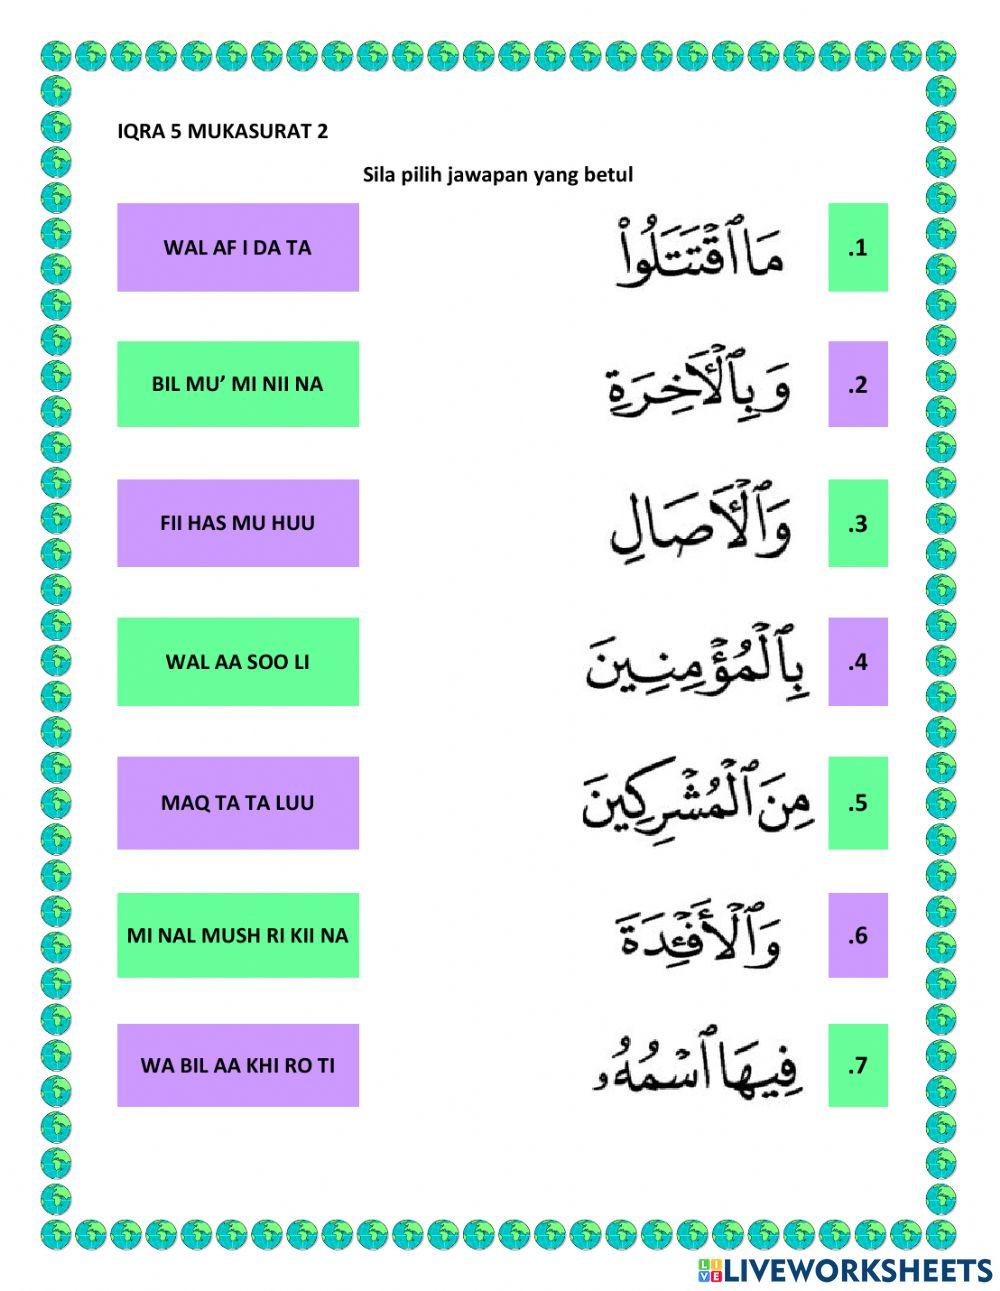 IQRA 5 MUKASURAT 2
Sila pilih jawapan yang betul
WAL AF I DA TA
مَا ٱقْتَتَلُوا۟
.1
BIL MU’ MI NII NA
وَبِٱلْأَخِرَةِ
.2
FII HAS MU HUU
وَٱلْأَصَالِ
.3
WAL AA SOO LI
بِٱلْمُؤْمِنِينَ
.4
MAQ TA TA LUU
مِنَ ٱلْمُشْرِكِينَ
.5
MI NAL MUSH RI KII NA
وَٱلْأَفْئِدَةَ
.6
WA BIL AA KHI RO TI
فِيهَا ٱسْمُهُۥ
.7
LIVE LIVEWORKSHEETS